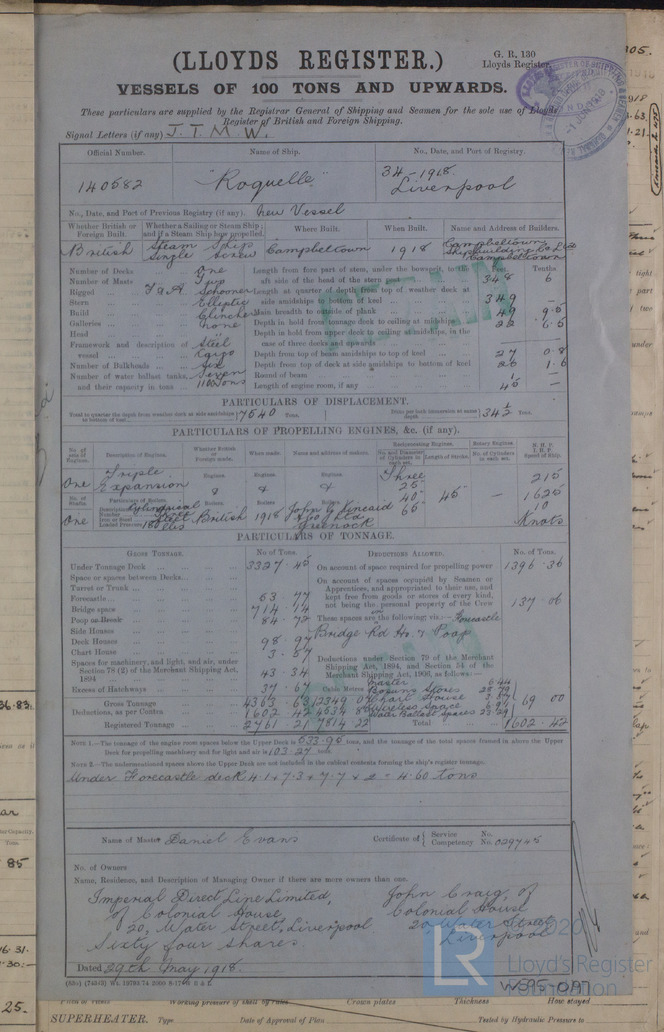 (LLOYDS REGISTER.)
G. R. 130
Lloyds Register
VESSELS OF 100 TONS AND UPWARDS.
These particulars are supplied by the Registrar General of Shipping and Seamen for the sole use of Lloyds
Register of British and Foreign Shipping.
Signal Letters (if any) J. T. M. W.
Official Number. Name of Ship. No., Date, and Port of Registry.
140582 "Roquelle" 34-1918. Liverpool
No., Date, and Port of Previous Registry (if any). New Vessel
Whether British or Foreign Built. Whether a Sailing or Steam Ship; and if a Steam Ship how propelled. Where Built. When Built. Name and Address of Builders.
British Steam Ship Single Screw Campbeltown 1918 Campbeltown Shipbuilding Co. Ltd Campbeltown
Number of Decks One
Number of Masts Two
Rigged F & A Schooner
Stern Elliptic
Build Clincher
Galleries None
Head
Framework and description of vessel Steel Cargo
Number of Bulkheads Six
Number of water ballast tanks, and their capacity in tons Seven
Feet Tenths
Length from fore part of stem, under the bowsprit, to the aft side of the head of the stern post 348 6
Length at quarter of depth from top of weather deck at side amidships to bottom of keel 349 —
Main breadth to outside of plank 49
Depth in hold from tonnage deck to ceiling at midships 22
Depth in hold from upper deck to ceiling at midships, in the case of three decks and upwards
Depth from top of beam amidships to top of keel 27 0.8
Depth from top of deck at side amidships to bottom of keel 26 1.6
Round of beam 1
Length of engine room, if any 45 —
PARTICULARS OF DISPLACEMENT.
Total to quarter the depth from weather deck at side amidships to bottom of keel 7640 Tons. Ditto per inch immersion at same depth 34½ Tons.
PARTICULARS OF PROPELLING ENGINES, &c. (if any).
No. of sets of Engines. Description of Engines. Whether British or Foreign made. When made. Name and address of makers. Reciprocating Engines. Rotary Engines
No. and Diameter of Cylinders in each set. Length of Stroke. No. of Cylinders in each set. N. H. P. I. H. P. Speed of Ship.
One Triple Expansion Three 25" 40" 66" 45" — 215 1625 10 Knots
No. of Shafts. Particulars of Boilers.
One Cylindrical Steel 180 lbs British 1918 John G Kincaid & Co Ltd Greenock
PARTICULARS OF TONNAGE.
GROSS TONNAGE. No of Tons. DEDUCTIONS ALLOWED. No. of Tons.
Under Tonnage Deck 3327.45
Space or spaces between Decks
Turret or Trunk
Forecastle 63 77
Bridge space 714 14
Poop or Break 84 72
Side Houses
Deck Houses 98.97
Chart House 3.57
Spaces for machinery, and light, and air, under Section 78 (2) of the Merchant Shipping Act, 1894 43 34
Excess of Hatchways 37 67
Gross Tonnage 4363 63 12349 07
Deductions, as per Contra 1602 42 4534 85
Registered Tonnage 2761 21 7814 22
On account of space required for propelling power 1396.36
On account of spaces occupied by Seamen or Apprentices, and appropriated to their use, and kept free from goods or stores of every kind, not being the personal property of the Crew 137.06
These spaces are the following; viz.:— Forecastle
Bridge Rd Ho. & Poop
Deductions under Section 79 of the Merchant Shipping Act, 1894, and Section 54 of the Merchant Shipping Act, 1906, as follows:—
Cubic Metres
Master 6.44
Bosun's Stores
Chart House 3.57
Wireless Space
Water Ballast Spaces
69 00
Total 1602.42
NOTE 1.—The tonnage of the engine room spaces below the Upper Deck is 633.96 tons, and the tonnage of the total spaces framed in above the Upper
Deck for propelling machinery and for light and air is 103.27 tons.
NOTE 2.—The undermentioned spaces above the Upper Deck are not included in the cubical contents forming the ship's register tonnage.
Under Forecastle deck 4.1 + 7.3 x 7.7 x 2 = 4.60 tons
Name of Master Daniel Evans Certificate of { Service No. Competency No. 029745
No. of Owners
Name, Residence, and Description of Managing Owner if there are more owners than one.
Imperial Direct Line Limited, John Craig of
of Colonial House, Colonial House
20, Water Street, Liverpool 20, Water Street
Sixty four shares. Liverpool
Dated 29th May 1918.
W595-0197
LR
2020
Lloyd's Register
Foundation
36.83
85
25.
SUPERHEATER. Type Date of Approval of Plan Tested by Hydraulic Pressure to
Working pressure of shell by rules Crown plates Thickness How stayed